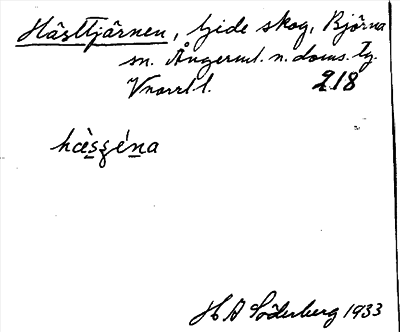 Hästtjärnen, Gide skog, Björna
sn. Ångerml. n. doms. tg.
Vnorrl l. 218
hæ̀sʂéna
H A Söderberg 1933